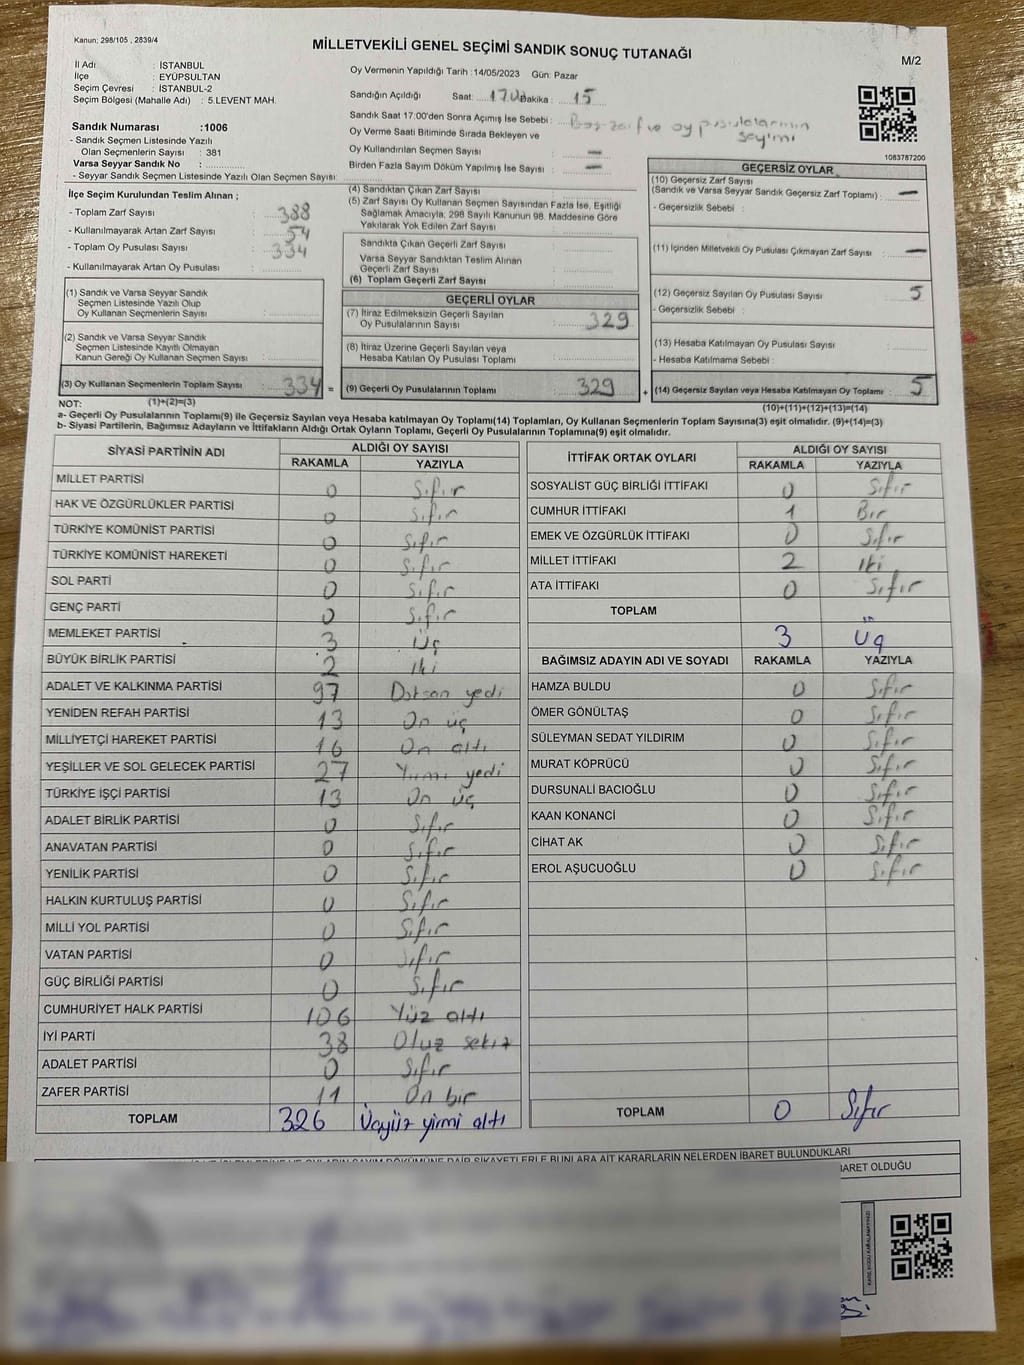 Kanun; 298/105 , 2839/4
MİLLETVEKİLİ GENEL SEÇİMİ SANDIK SONUÇ TUTANAĞI
M/2
İl Adı : İSTANBUL
İlçe : EYÜPSULTAN
Seçim Çevresi : İSTANBUL-2
Seçim Bölgesi (Mahalle Adı) : 5.LEVENT MAH.
Sandık Numarası :1006
- Sandık Seçmen Listesinde Yazılı
Olan Seçmenlerin Sayısı : 381
Varsa Seyyar Sandık No :
- Seyyar Sandık Seçmen Listesinde Yazılı Olan Seçmen Sayısı:
Oy Vermenin Yapıldığı Tarih :14/05/2023 Gün: Pazar
Sandığın Açıldığı Saat: 17.00 Dakika : 15
Sandık Saat 17:00'den Sonra Açımış İse Sebebi : Boş zarf ve oy pusulalarının
sayımı
Oy Verme Saati Bitiminde Sırada Bekleyen ve
Oy Kullandırılan Seçmen Sayısı : —
Birden Fazla Sayım Döküm Yapılmış İse Sayısı : —
1083787200
İlçe Seçim Kurulundan Teslim Alınan ;
- Toplam Zarf Sayısı : 388
- Kullanılmayarak Artan Zarf Sayısı : 54
- Toplam Oy Pusulası Sayısı : 334
- Kullanılmayarak Artan Oy Pusulası :
(1) Sandık ve Varsa Seyyar Sandık
Seçmen Listesinde Yazılı Olup
Oy Kullanan Seçmenlerin Sayısı :
(2) Sandık ve Varsa Seyyar Sandık
Seçmen Listesinde Kayıtlı Olmayan
Kanun Gereği Oy Kullanan Seçmen Sayısı :
(3) Oy Kullanan Seçmenlerin Toplam Sayısı : 334 =
(4) Sandıktan Çıkan Zarf Sayısı :
(5) Zarf Sayısı Oy Kullanan Seçmen Sayısından Fazla İse, Eşitliği
Sağlamak Amacıyla; 298 Sayılı Kanunun 98. Maddesine Göre
Yakılarak Yok Edilen Zarf Sayısı :
Sandıkta Çıkan Geçerli Zarf Sayısı :
Varsa Seyyar Sandıktan Teslim Alınan
Geçerli Zarf Sayısı :
(6) Toplam Geçerli Zarf Sayısı :
GEÇERLİ OYLAR
(7) İtiraz Edilmeksizin Geçerli Sayılan
Oy Pusulalarının Sayısı : 329
(8) İtiraz Üzerine Geçerli Sayılan veya
Hesaba Katılan Oy Pusulası Toplamı :
(9) Geçerli Oy Pusulalarının Toplamı : 329 +
GEÇERSİZ OYLAR
(10) Geçersiz Zarf Sayısı
(Sandık ve Varsa Seyyar Sandık Geçersiz Zarf Toplamı) : —
- Geçersizlik Sebebi :
(11) İçinden Milletvekili Oy Pusulası Çıkmayan Zarf Sayısı : —
(12) Geçersiz Sayılan Oy Pusulası Sayısı : 5
- Geçersizlik Sebebi :
(13) Hesaba Katılmayan Oy Pusulası Sayısı :
- Hesaba Katılmama Sebebi :
(14) Geçersiz Sayılan veya Hesaba Katılmayan Oy Toplamı : 5
NOT: (1)+(2)=(3)
(10)+(11)+(12)+(13)=(14)
a- Geçerli Oy Pusulalarının Toplamı(9) ile Geçersiz Sayılan veya Hesaba katılmayan Oy Toplamı(14) Toplamları, Oy Kullanan Seçmenlerin Toplam Sayısına(3) eşit olmalıdır. (9)+(14)=(3)
b- Siyasi Partilerin, Bağımsız Adayların ve İttifakların Aldığı Ortak Oyların Toplamı, Geçerli Oy Pusulalarının Toplamına(9) eşit olmalıdır.
SİYASİ PARTİNİN ADI ALDIĞI OY SAYISI
RAKAMLA YAZIYLA
MİLLET PARTİSİ 0 Sıfır
HAK VE ÖZGÜRLÜKLER PARTİSİ 0 Sıfır
TÜRKİYE KOMÜNİST PARTİSİ 0 Sıfır
TÜRKİYE KOMÜNİST HAREKETİ 0 Sıfır
SOL PARTİ 0 Sıfır
GENÇ PARTİ 0 Sıfır
MEMLEKET PARTİSİ 3 Üç
BÜYÜK BİRLİK PARTİSİ 2 İki
ADALET VE KALKINMA PARTİSİ 97 Doksan yedi
YENİDEN REFAH PARTİSİ 13 On üç
MİLLİYETÇİ HAREKET PARTİSİ 16 On altı
YEŞİLLER VE SOL GELECEK PARTİSİ 27 Yirmi yedi
TÜRKİYE İŞÇİ PARTİSİ 13 On üç
ADALET BİRLİK PARTİSİ 0 Sıfır
ANAVATAN PARTİSİ 0 Sıfır
YENİLİK PARTİSİ 0 Sıfır
HALKIN KURTULUŞ PARTİSİ 0 Sıfır
MİLLİ YOL PARTİSİ 0 Sıfır
VATAN PARTİSİ 0 Sıfır
GÜÇ BİRLİĞİ PARTİSİ 0 Sıfır
CUMHURİYET HALK PARTİSİ 106 Yüz altı
İYİ PARTİ 38 Otuz sekiz
ADALET PARTİSİ 0 Sıfır
ZAFER PARTİSİ 11 On bir
TOPLAM 326 Üçyüz yirmi altı
İTTİFAK ORTAK OYLARI ALDIĞI OY SAYISI
RAKAMLA YAZIYLA
SOSYALİST GÜÇ BİRLİĞİ İTTİFAKI 0 Sıfır
CUMHUR İTTİFAKI 1 Bir
EMEK VE ÖZGÜRLÜK İTTİFAKI 0 Sıfır
MİLLET İTTİFAKI 2 İki
ATA İTTİFAKI 0 Sıfır
TOPLAM
3 Üç
BAĞIMSIZ ADAYIN ADI VE SOYADI RAKAMLA YAZIYLA
HAMZA BULDU 0 Sıfır
ÖMER GÖNÜLTAŞ 0 Sıfır
SÜLEYMAN SEDAT YILDIRIM 0 Sıfır
MURAT KÖPRÜCÜ 0 Sıfır
DURSUNALİ BACIOĞLU 0 Sıfır
KAAN KONANCİ 0 Sıfır
CİHAT AK 0 Sıfır
EROL AŞUCUOĞLU 0 Sıfır
TOPLAM 0 Sıfır
OYLARIN SAYIM DÖKÜMÜNE DAİR ŞİKAYETLERLE BUNLARA AİT KARARLARIN NELERDEN İBARET BULUNDUKLARI
İBARET OLDUĞU
KARE KODU KARALAMAYINIZ!